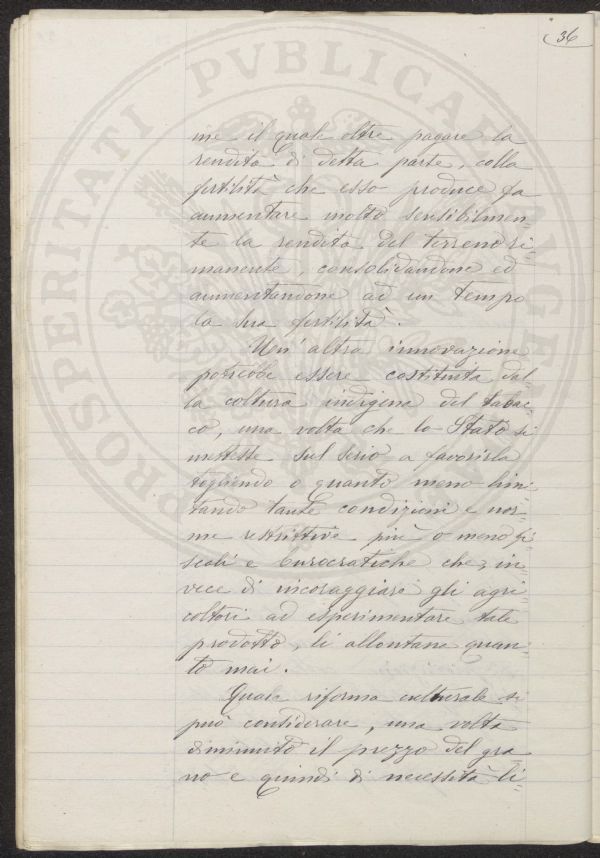 36
PROSPERITATI PVBLICAE AVGENDAE
me il quale oltre pagare la
rendita di detta parte, colla
fertilità che esso produce fa
aumentare molto sensibilmen=
te la rendita del terreno ri=
manente, consolidandone ed
aumentandone ad un tempo
la sua fertilità.
Un'altra innovazione
potrebbe essere costituita dal=
la coltura indigena del tabac=
co, una volta che lo Stato si
mettesse sul serio a favorirla
togliendo o quanto meno limi=
tando tante condizioni e nor=
me restrittive più o meno fi=
scali e burocratiche che, in=
vece di incoraggiare gli agri=
coltori ad esperimentare tale
prodotto, li allontana quan=
to mai.
Quale riforma culturale si
può considerare, una volta
diminuito il prezzo del gra=
no e quindi di necessità li=